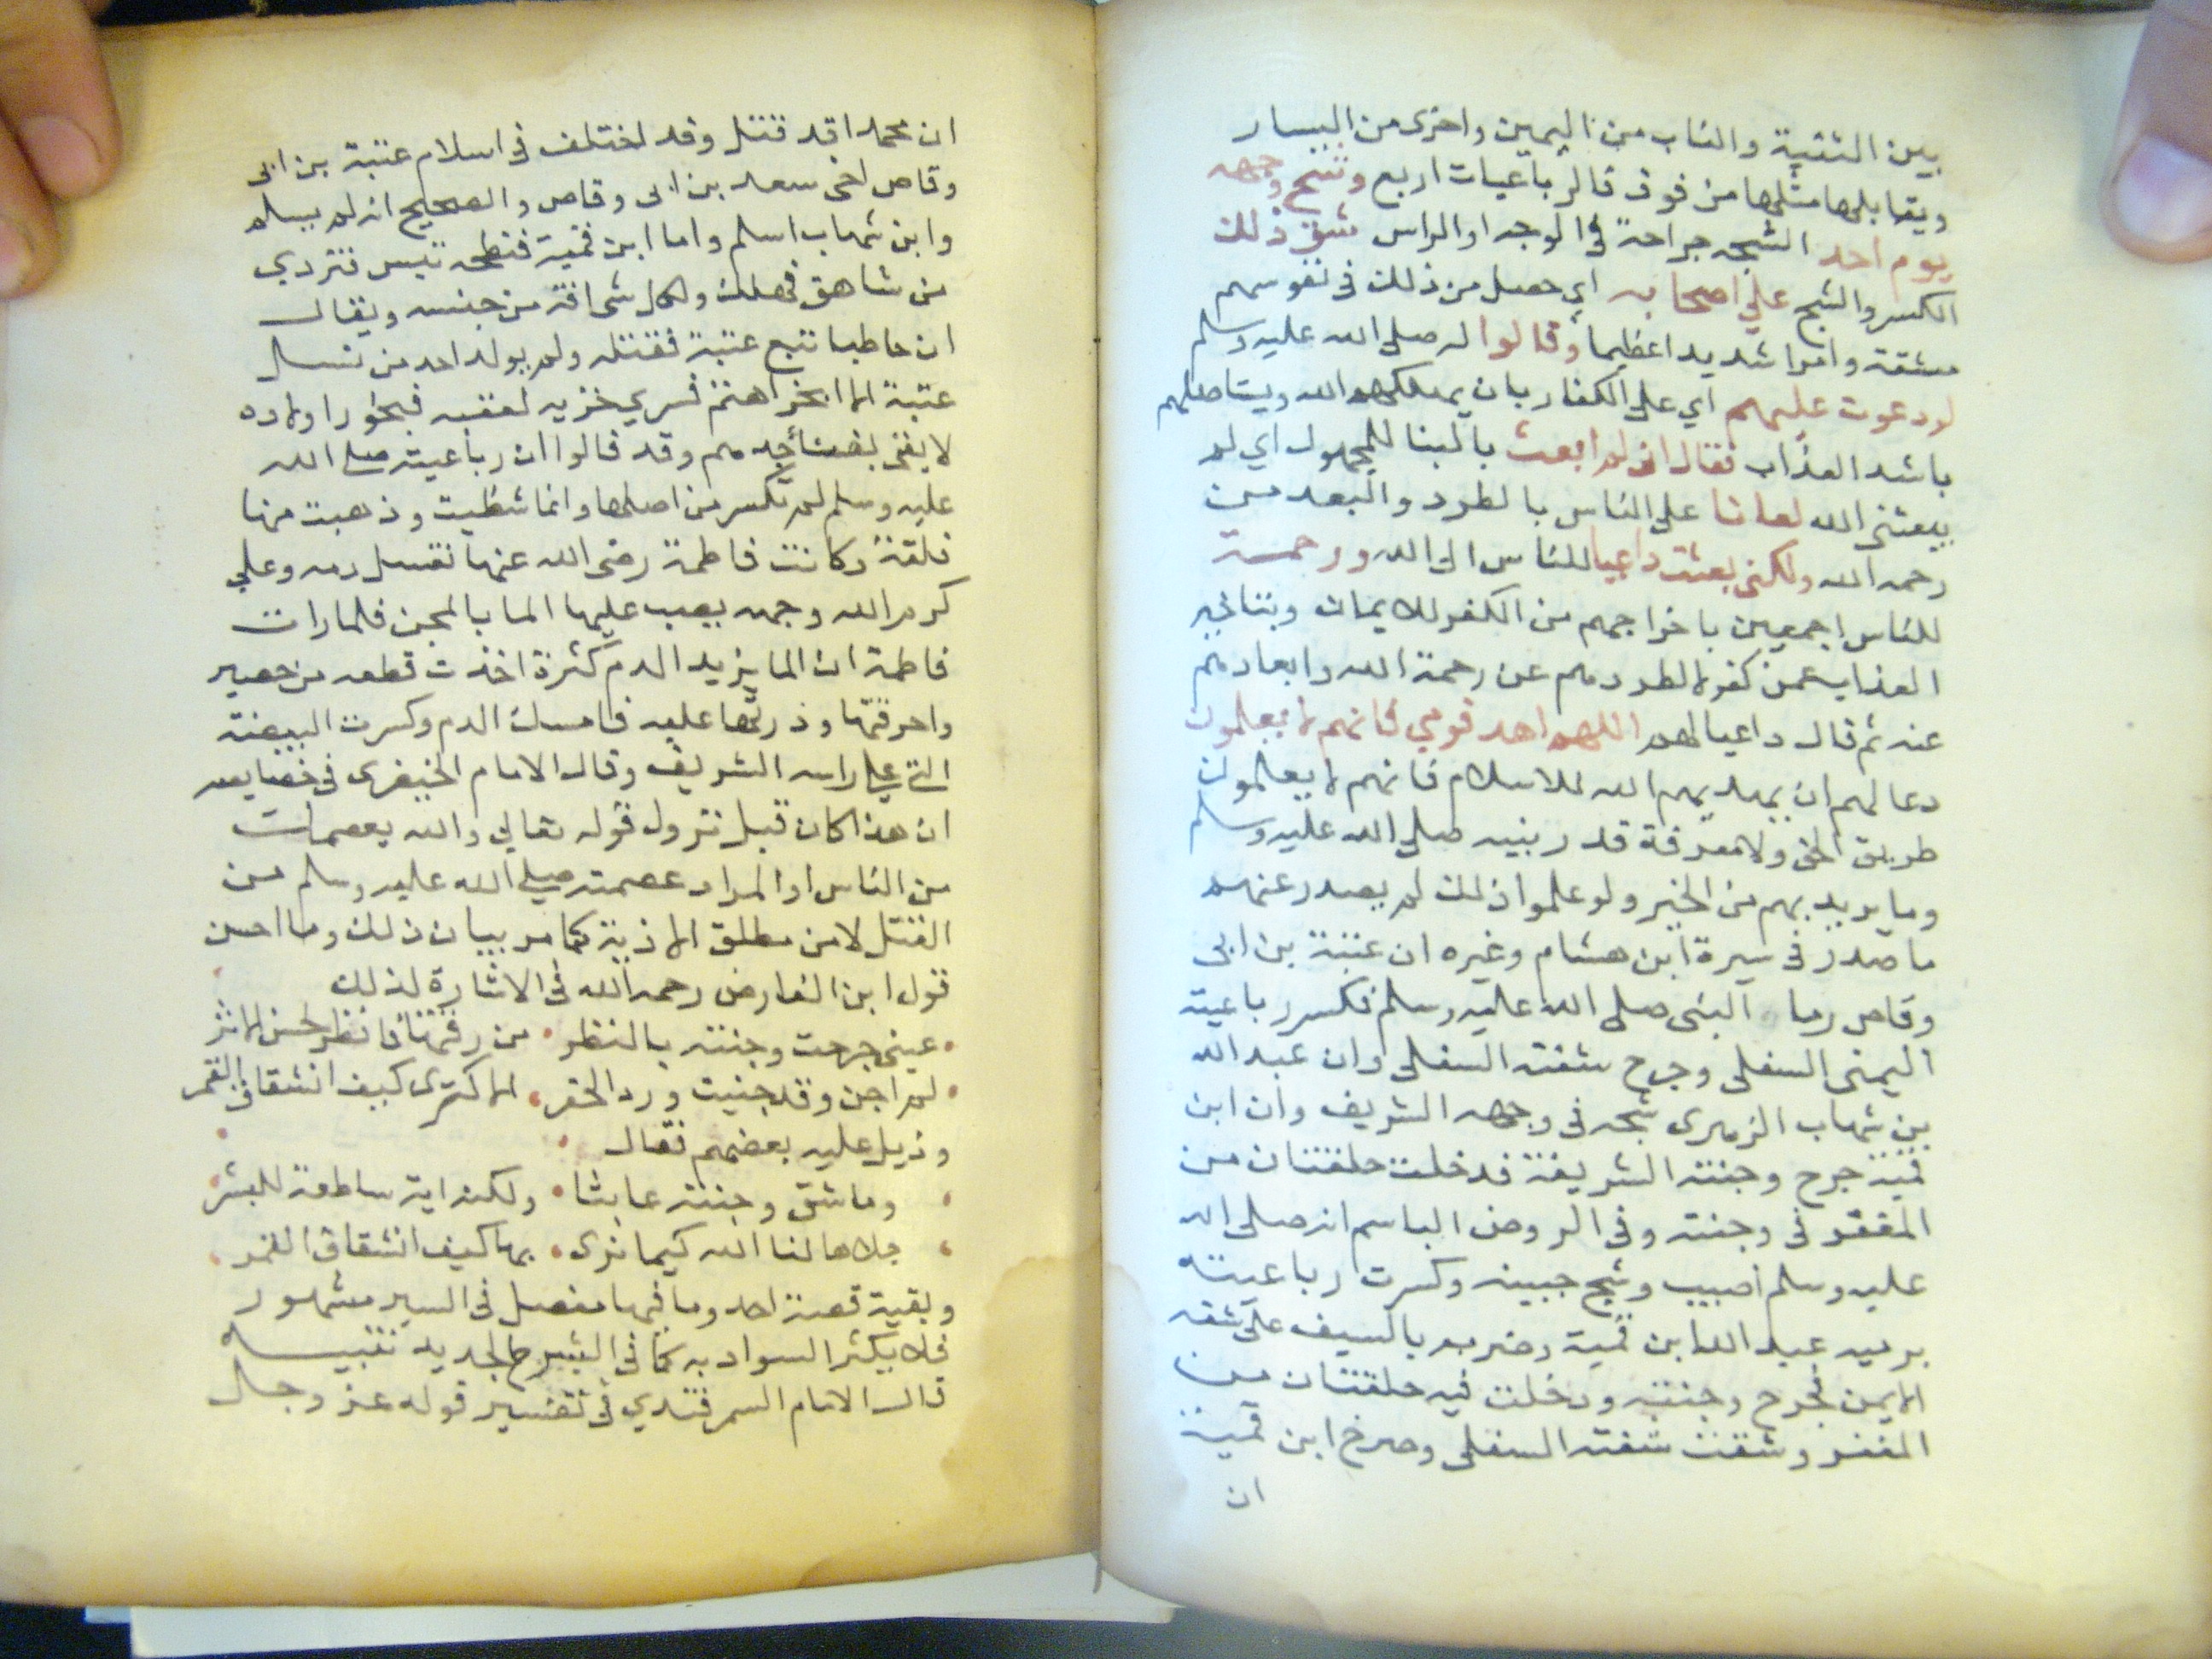 بين الثنية والناب من اليمين واخرى من اليسار
ويقابلها مثلها من فوق فالرباعيات اربع وشج وجهه
يوم احد الشجه جراحة في الوجه او الراس شق ذلك
الكسر والشج علي اصحابه اي حصل من ذلك في نفوسهم
مشقة وامرا شديدا عظيما وقالوا له صلى الله عليه وسلم
لو دعوت عليهم اي على الكفار بان يهلكهم الله ويستاصلهم
باشد العذاب فقال اني لم ابعث بالبنا للمجهول اي لم
يبعثني الله لعانا على الناس بالطرد والبعد من
رحمه الله ولكني بعثت داعيا للناس الى الله ورحمة
للناس اجمعين باخراجهم من الكفر للايمان وبتاخير
العذاب عمن كفر لا لطردهم عن رحمة الله وابعادهم
عنه ثم قال داعيا لهم اللهم اهد قومي فانهم لا يعلمون
دعا لهم ان يهديهم الله للاسلام فانهم لا يعلمون
طريق الحق ولا معرفة قدر نبيه صلى الله عليه وسلم
وما يريد بهم من الخير ولو علموا ذلك لم يصدر عنهم
ما صدر في سيرة ابن هشام وغيره ان عتبة بن ابي
وقاص رما النبى صلى الله عليه وسلم فكسر رباعيته
اليمنى السفلى وجرح شفته السفلى وان عبد الله
بن شهاب الزهرى شجه فى وجهه الشريف وان ابن
قمية جرح وجنته الشريفة فدخلت حلقتان من
المغفر فى وجنته وفى الروض الباسم انه صلى الله
عليه وسلم اصيب وشج جبينه وكسرت رباعيته
برميه عبد الله ابن قمية وضربه بالسيف على شقه
الايمن فجرح وجنته ودخلت فيه حلقتان من
المغفر وشقت شفته السفلى وصرخ ابن قمية
ان
ان محمدا قد قتل وقد اختلف فى اسلام عتبة بن ابى
وقاص اخى سعد بن ابى وقاص والصحيح انه لم يسلم
وابن شهاب اسلم واما ابن قمية فنطحه تيس فتردي
من شاهق فهلك ولكل شى افة من جنسه ويقال
ان حاطبا تتبع عتبة فقتله ولم يولد احد من نسل
عتبة الا ابخر اهتم فسري خزيه لعقبه فبخور اولاده
لا يفنى بقضا جدهم وقد قالوا ان رباعيته صلى الله
عليه وسلم لم تكسر من اصلها وانما شظيت وذهبت منها
فلقة وكانت فاطمة رضى الله عنها تغسل دمه وعلي
كرم الله وجهه يصب عليها الما بالمجن فلما رات
فاطمة ان الما يزيد الدم كثرة اخذت قطعه من حصير
واحرقتها وذرتها عليه فامسك الدم وكسرت البيضة
التي علي راسه الشريف وقال الامام الخيضرى فى خصايصه
ان هذا كان قبل نزول قوله تعالي والله يعصمك
من الناس او المراد عصمته صلي الله عليه وسلم من
القتل لا من مطلق الاذية كما مر بيان ذلك وما احسن
قول ابن الفارض رحمه الله فى الاشارة لذلك
عينى جرحت وجنته بالنظر من رقتها فانظر لحسن الاثر
لم اجن وقد جنيت ورد الخفر الا لترى كيف انشقاق القمر
وذيل عليه بعضهم فقال
وما شق وجنته عابثا ولكنه اية ساطعة للبشر
جلاها لنا الله كيما نرى بها كيف انشقاق القمر
وبقية قصة احد وما فيها مفصل فى السير مشهور
فلا يكثر السواد به كما فى الشرح الجديد تنبيه
قال الامام السمرقندي فى تفسير قوله عز وجل